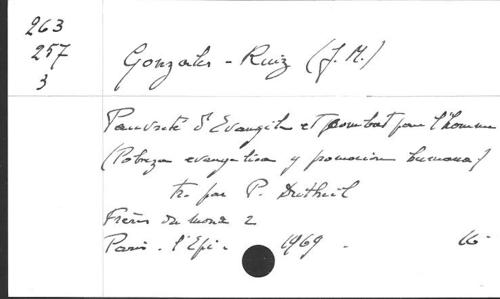 263
257
3
Gonzalez - Ruiz (J. M.)
Pauvreté d'Evangile et combat pour l'homme
(Pobreza evangelica y promocion humana)
tr. par P. Dutheil
Frères du monde 2
Paris. l'Epi. 1969. 16